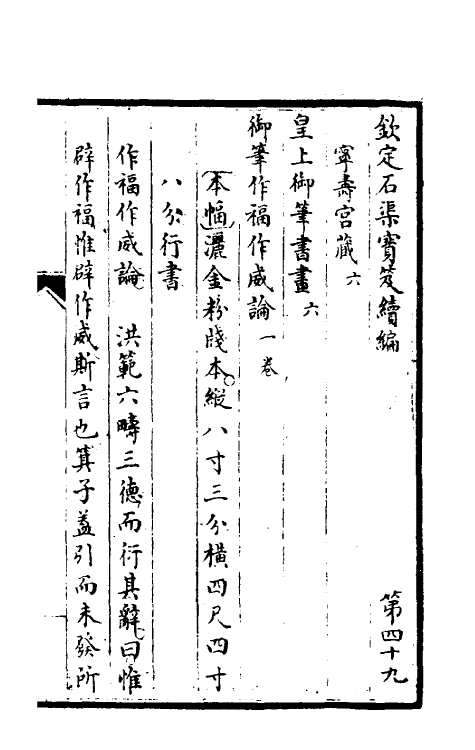 欽定石渠寶笈續編 第四十九
寧壽宮藏 六
皇上御筆書畫 六
御筆作福作威論 一卷
本幅灑金粉牋本縱八寸三分橫四尺四寸
八分行書
作福作威論 洪範六疇三德而衍其辭曰惟
辟作福惟辟作威斯言也箕子蓋引而未發所